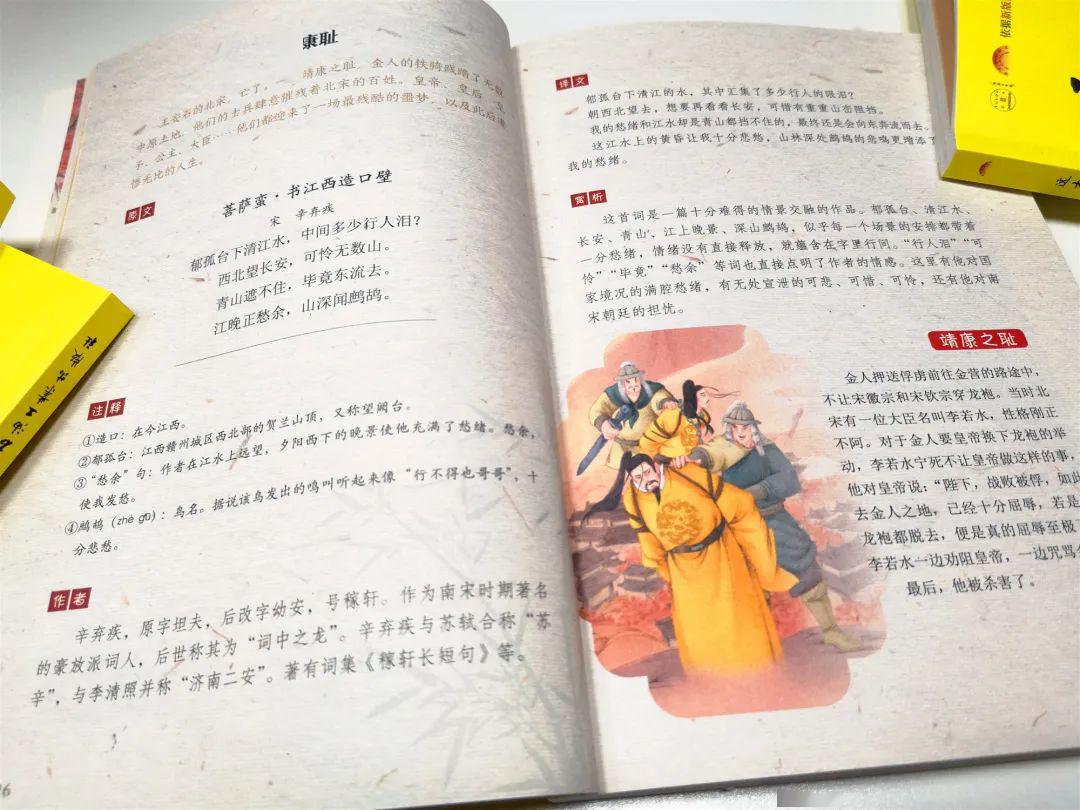 康耻
靖康之耻，金人的铁骑践踏了大宋
王安石的北宋，亡了。
中原土地，他们的士兵肆意摧残着北宋的百姓。皇帝、皇后、皇
子、公主、大臣……他们都迎来了一场最残酷的噩梦，以及此后凄
惨无比的人生。
原文
菩萨蛮·书江西造口壁
宋 辛弃疾
郁孤台下清江水，中间多少行人泪？
西北望长安，可怜无数山。
青山遮不住，毕竟东流去。
江晚正愁余，山深闻鹧鸪。
注释
①造口：在今江西。
②郁孤台：江西赣州城区西北部的贺兰山顶，又称望阙台。
③“愁余”句：作者在江水上远望，夕阳西下的晚景使他充满了愁绪。愁余，
使我发愁。
④鹧鸪（zhè gū）：鸟名。据说该鸟发出的鸣叫听起来像“行不得也哥哥”，十
分悲愁。
作者
辛弃疾，原字坦夫，后改字幼安，号稼轩。作为南宋时期著名
的豪放派词人，后世称其为“词中之龙”。辛弃疾与苏轼合称“苏
辛”，与李清照并称“济南二安”。著有词集《稼轩长短句》等。
译文
郁孤台下清江的水，其中汇集了多少行人的眼泪？
朝西北望去，想要再看看长安，可惜有重重山峦阻挡。
我的愁绪和江水却是青山都挡不住的，最终还是会向东奔流而去。
这江水上的黄昏让我十分愁愁，山林深处鹧鸪的悲鸣更增添了
我的愁绪。
赏析
这首词是一篇十分难得的情景交融的作品。郁孤台、清江水、
长安、青山、江上晚景、深山鹧鸪，似乎每一个场景的安排都带着
一分愁绪，情绪没有直接释放，就蕴含在字里行间。“行人泪”“可
怜”“毕竟”“愁余”等词也直接点明了作者的情感。这里有他对国
家境况的满腔愁绪，有无处宣泄的可悲、可惜、可怜，还有他对南
宋朝廷的担忧。
靖康之耻
金人押送俘虏前往金营的路途中，
不让宋徽宗和宋钦宗穿龙袍。当时北
宋有一位大臣名叫李若水，性格刚正
不阿。对于金人要皇帝换下龙袍的举
动，李若水宁死不让皇帝做这样的事，
他对皇帝说：“陛下，战败被俘，如此
去金人之地，已经十分屈辱，若是
龙袍都脱去，便是真的屈辱至极！
李若水一边劝阻皇帝，一边咒骂金
最后，他被杀害了。
依据新版